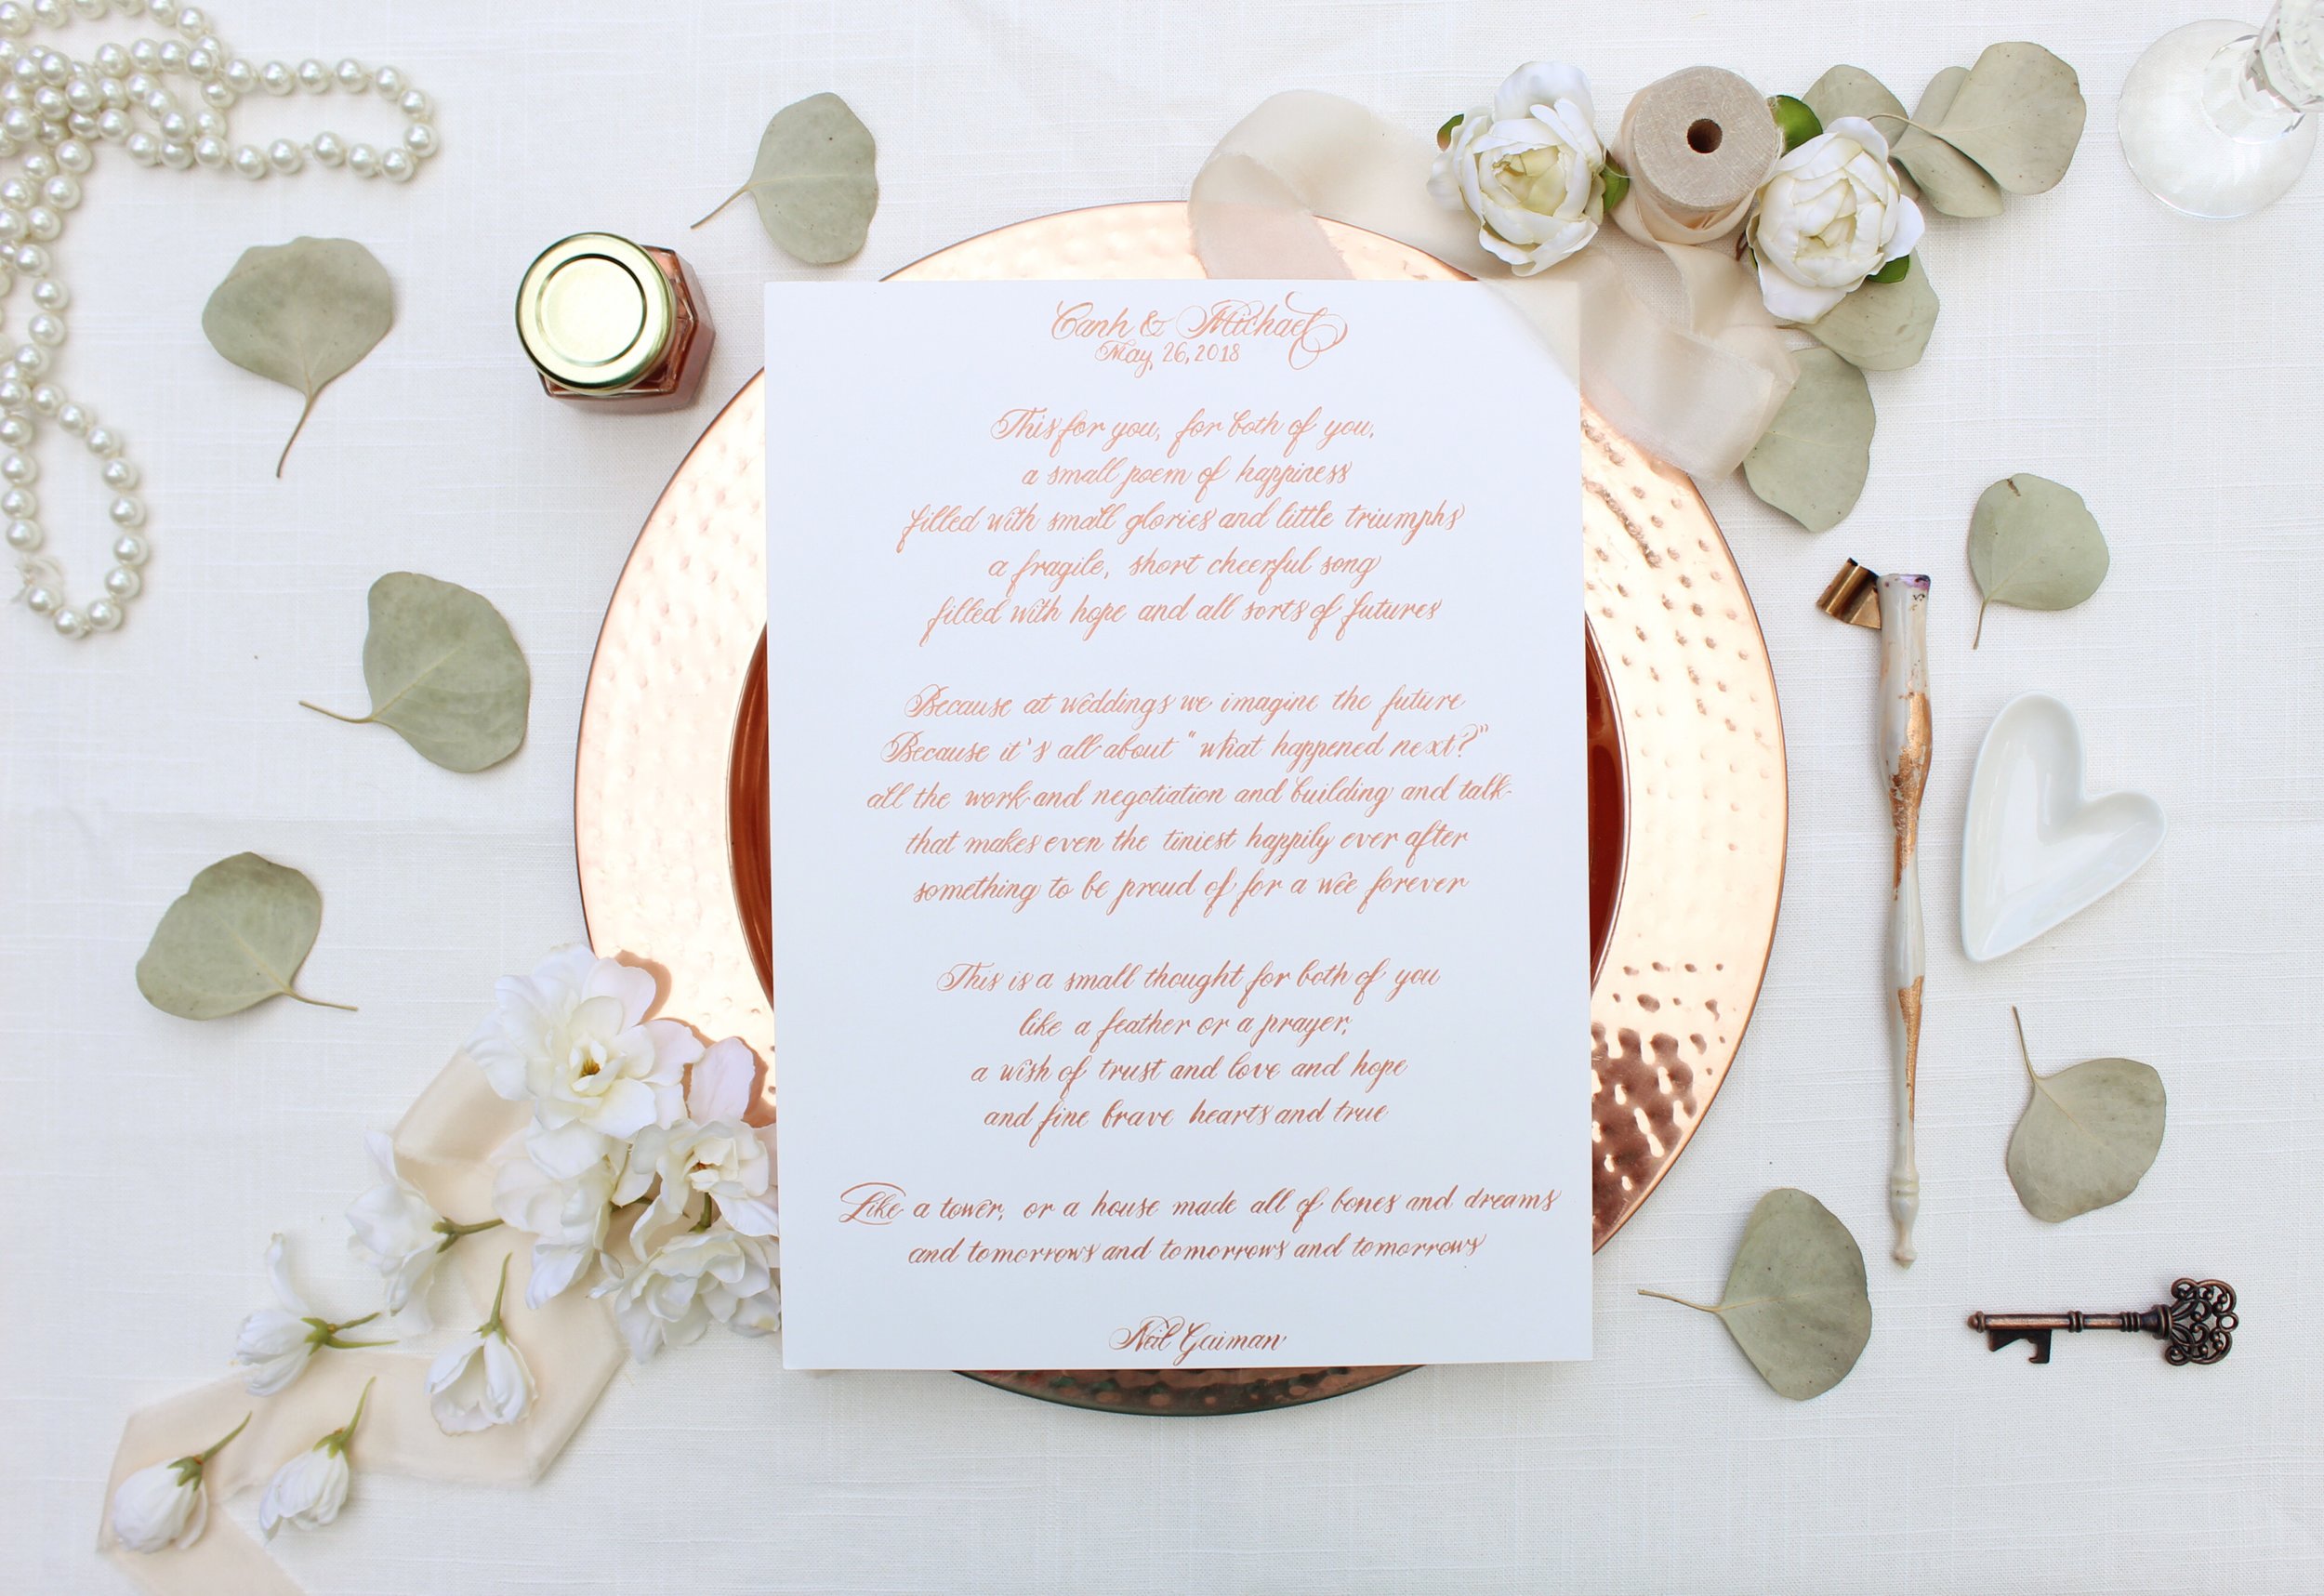 Canh & Michael
May, 26, 2018
This for you, for both of you,
a small poem of happiness
filled with small glories and little triumphs
a fragile, short cheerful song
filled with hope and all sorts of futures
Because at weddings we imagine the future
Because it's all about "what happened next?"
all the work and negotiation and building and talk
that makes even the tiniest happily ever after
something to be proud of for a wee forever
This is a small thought for both of you
like a feather or a prayer,
a wish of trust and love and hope
and fine brave hearts and true
Like a tower, or a house made all of bones and dreams
and tomorrows and tomorrows and tomorrows
Neil Gaiman